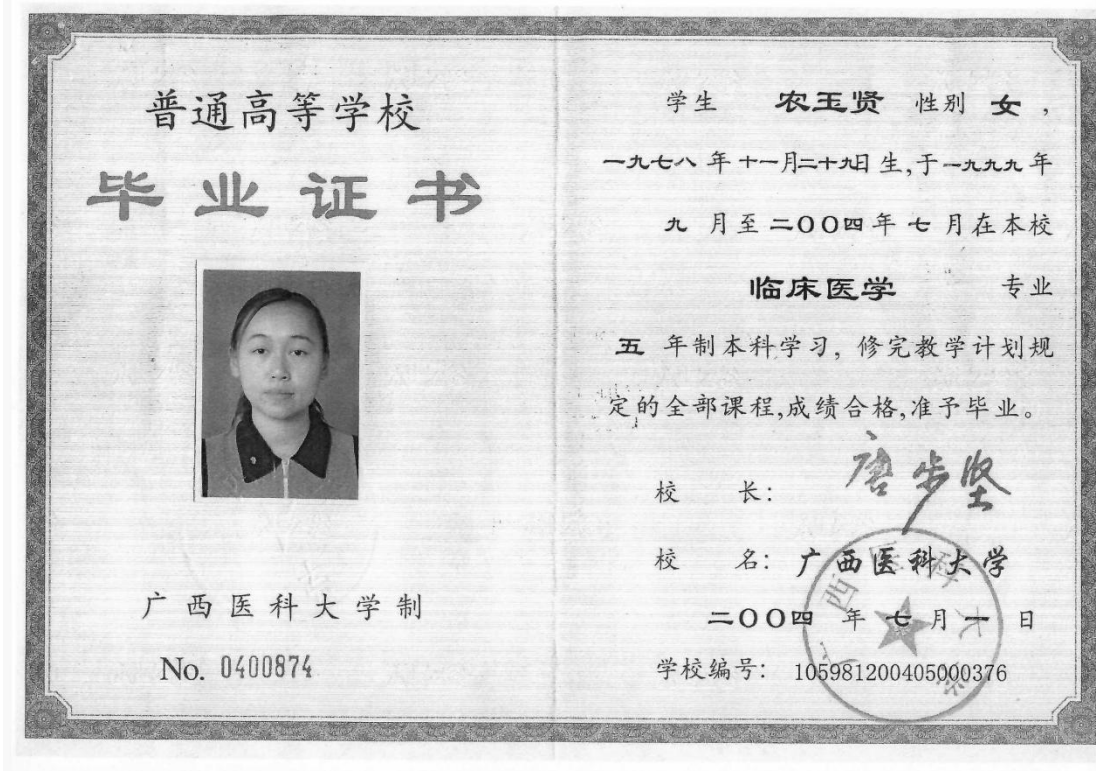 普通高等学校
毕业证书
广西医科大学制
No. 0400874
学生 农玉贤 性别 女，
一九七八 年 十一月二十九日 生,于 一九九九 年
九 月至 二〇〇四 年 七 月在本校
临床医学 专业
五 年制本科学习，修完教学计划规
定的全部课程,成绩合格,准予毕业。
校 长: 唐步坚
校 名: 广西医科大学
二〇〇四 年 七 月 一 日
学校编号: 105981200405000376
广西医科大学